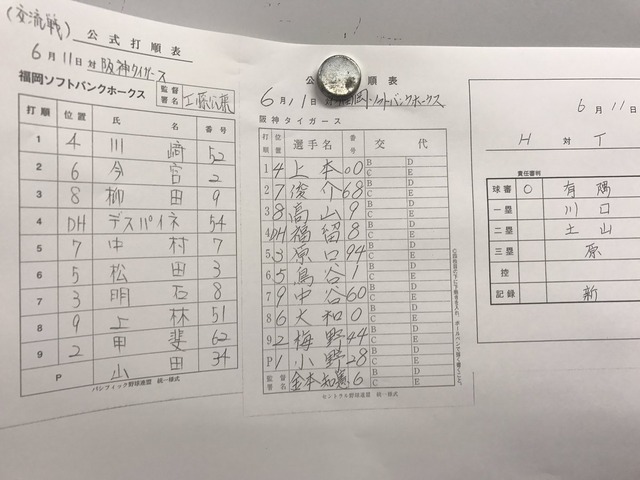 (交流戦)
公式打順表
6月11日対阪神タイガース
福岡ソフトバンクホークス 監督署名 工藤公康
打順 位置 氏名 番号
1 4 川﨑 52
2 6 今宮 2
3 8 柳田 9
4 DH デスパイネ 54
5 7 中村 7
6 5 松田 3
7 3 明石 8
8 9 上林 51
9 2 甲斐 62
P 山田 34
パシフィック野球連盟 統一様式
公 順表
6月11日対福岡ソフトバンクホークス
阪神タイガース
打順 位置 選手名 番号 交代
1 4 上本 00 B D C E
2 7 俊介 68 B D C E
3 8 高山 9 B D C E
4 DH 福留 8 B D C E
5 3 原口 94 B D C E
6 5 鳥谷 1 B D C E
7 9 中谷 60 B D C E
8 6 大和 0 B D C E
9 2 梅野 44 B D C E
P 1 小野 28 B D C E
監督署名 金本知憲 6 B D C E
セントラル野球連盟 統一様式
6月11日
H 対 T
責任審判
球審 〇 有隅
一塁 川口
二塁 土山
三塁 原
控
記録 新